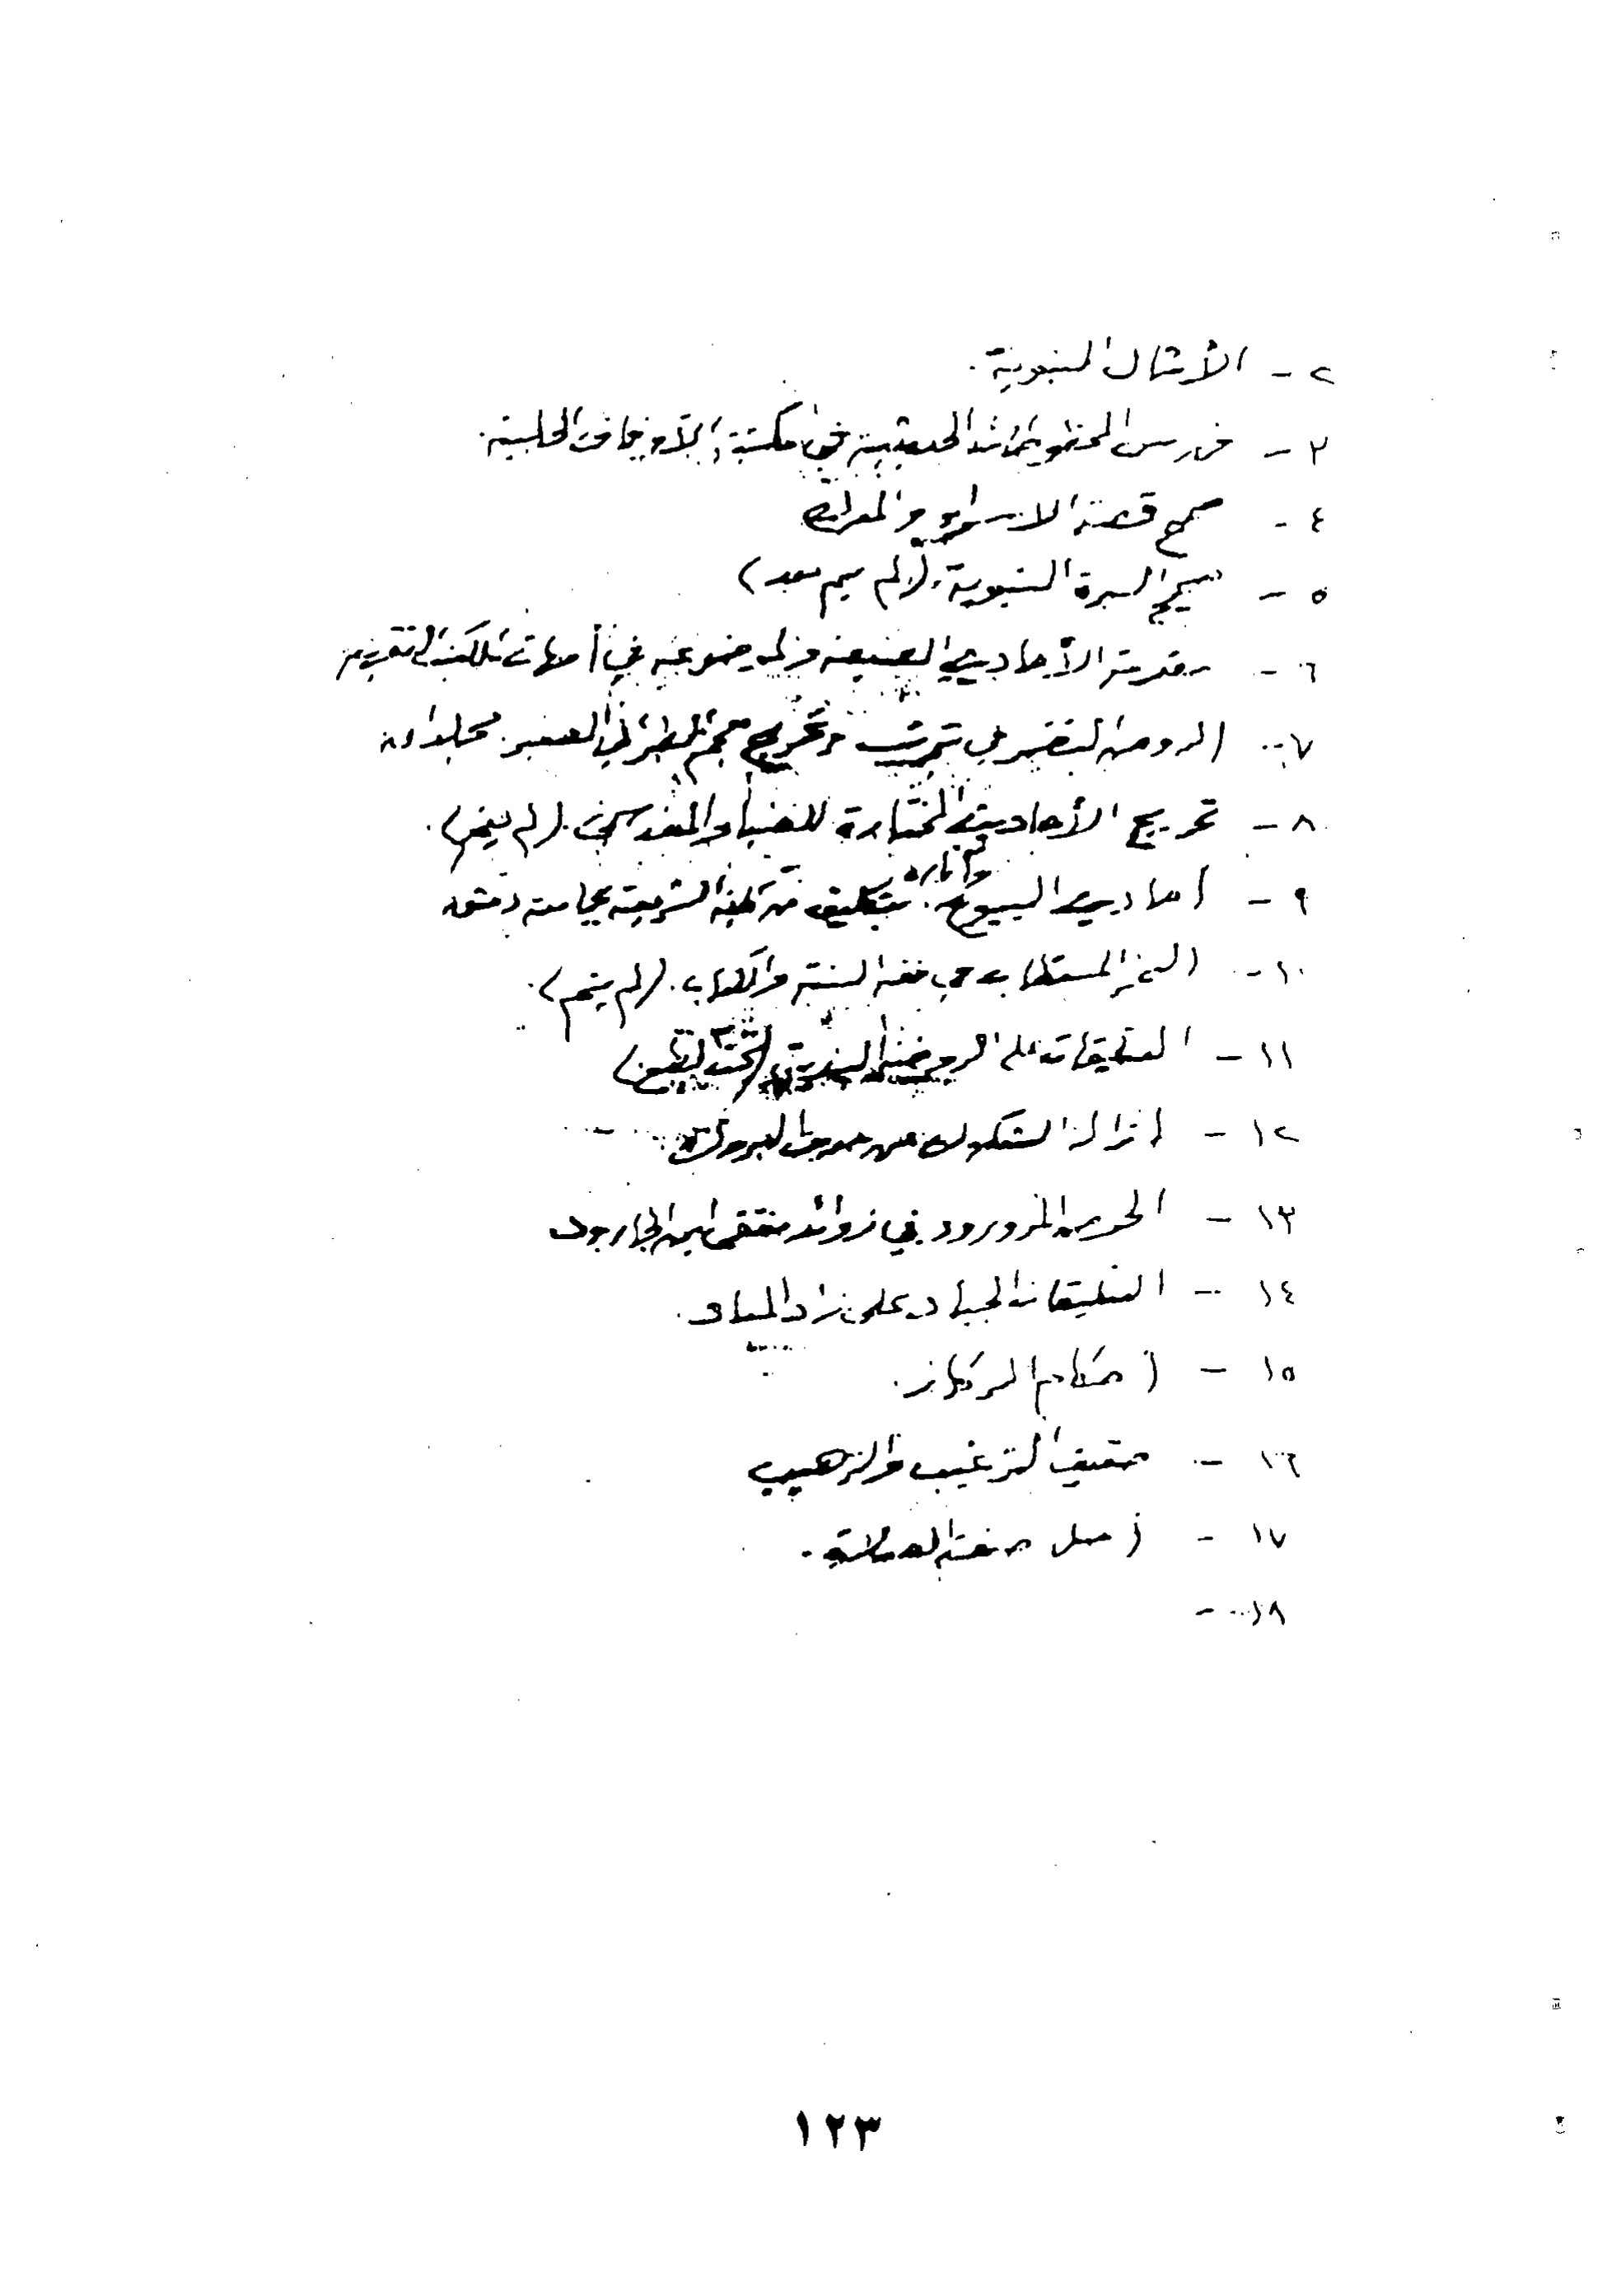 ٢ - الأمثال النبوية.
٣ - فهرس المخطوطات الحديثية في مكتبة الأوقاف الحلبية.
٤ - صحيح قصة الاسراء والمعراج
٥ - صحيح السيرة النبوية. (لم يتم بعد)
٦ - مقدمة الأحاديث الضعيفة والموضوعة في أمهات الكتب الفقهية
٧ - الروض النضير في ترتيب وتخريج معجم الطبراني الصغير. مجلدان
٨ - تخريج الأحاديث المختارة للضياء المقدسي. (لم يتم).
٩ - أحاديث البيوع وآثاره. بتكليف من كلية الشريعة بجامعة دمشق
١٠ - الثمر المستطاب في فقه السنة والكتاب. (لم يتم).
١١ - التعليقات على الروضة الندية (تحت الطبع)
١٢ - ازالة الشكوك عن حديث البروك
١٣ - الحوض المورود في زوائد منتقى ابن الجارود
١٤ - التعليقات الجياد على زاد المعاد.
١٥ - أحكام الركاز.
١٦ - تحقيق الترغيب والترهيب
١٧ - أصل صفة الصلاة.
١٨ -
١٢٣